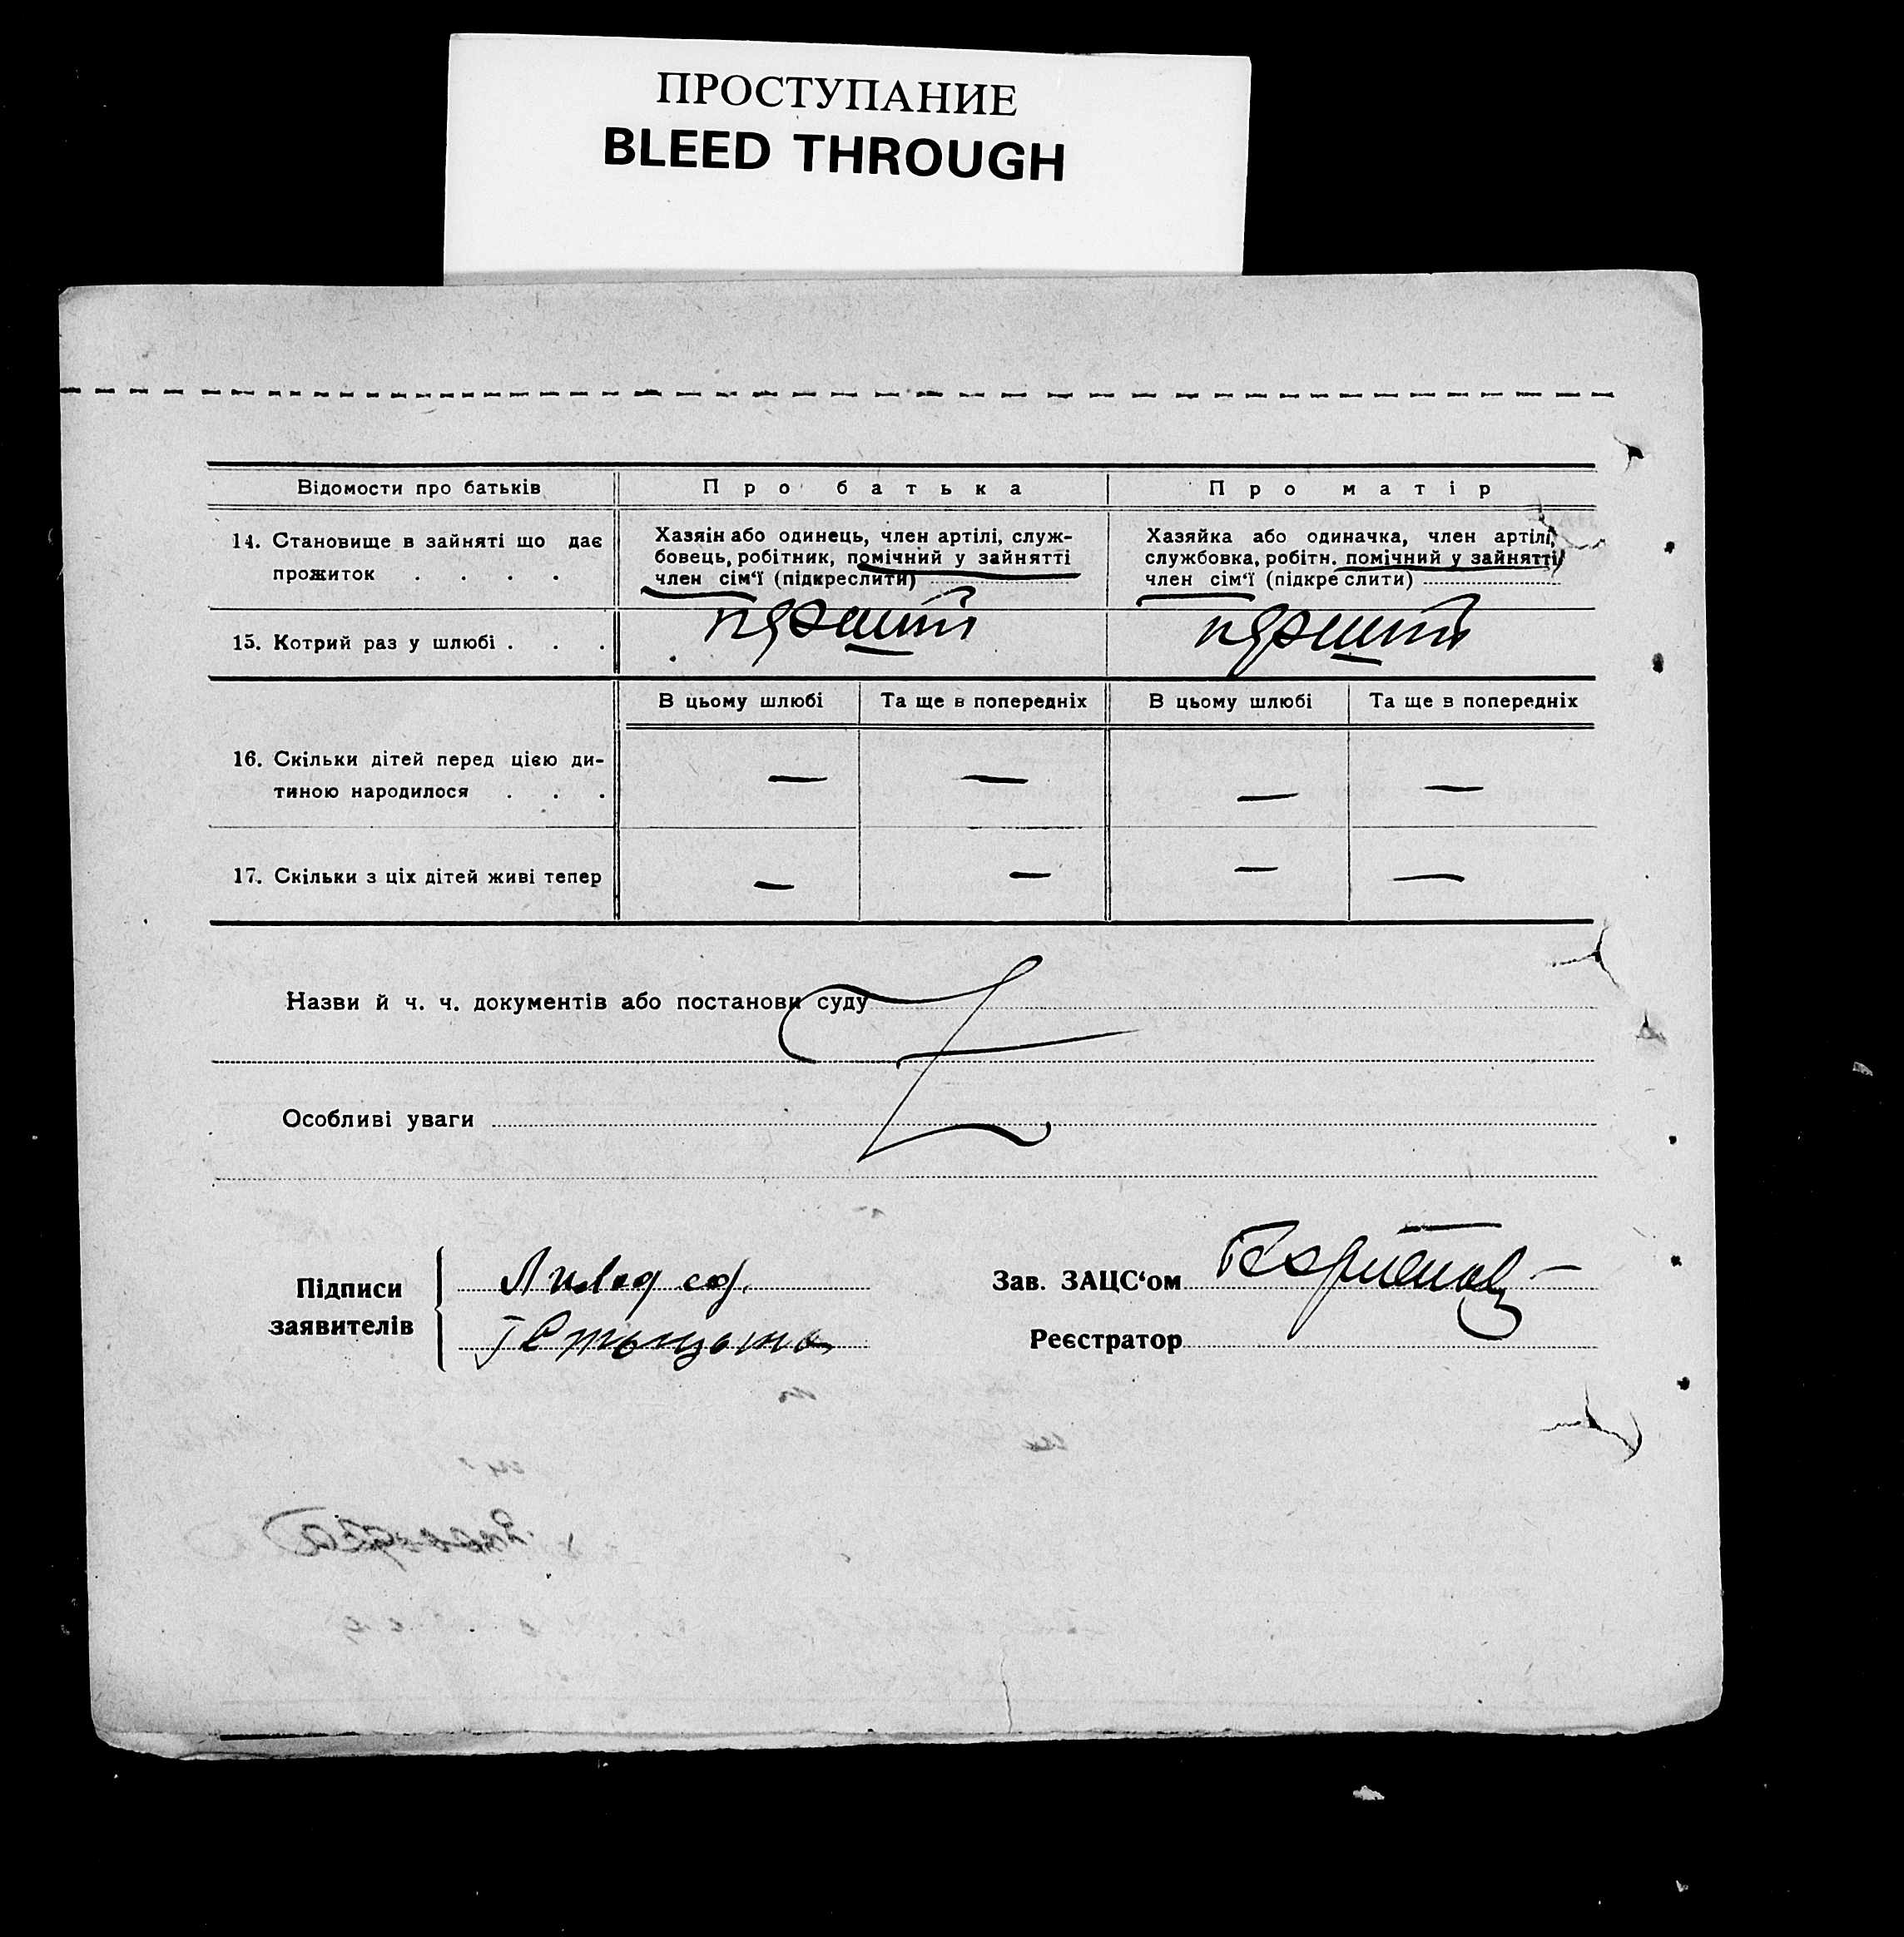 ПРОСТУПАНИЕ
BLEED THROUGH
Відомости про батьків
Про батька
Про матір
14. Становище в зайняті що дає
прожиток . . . .
Хазяін або одинець, член артілі, служ-
бовець, робітник, помічний у зайнятті
член сім‘ї (підкреслити)
Хазяйка або одиначка, член артілі,
службовка, робітн. помічний у зайнятті
член сім‘ї (підкреслити)
15. Котрий раз у шлюбі . . .
перший
перший
В цьому шлюбі
Та ще в попередніх
В цьому шлюбі
Та ще в попередніх
16. Скільки дітей перед цією ди-
тиною народилося . . .
— — — —
17. Скільки з ціх дітей живі тепер
— — — —
Назви й ч. ч. документів або постанови суду
Особливі уваги
Підписи
заявителів
Зав. ЗАЦС‘ом
Реєстратор